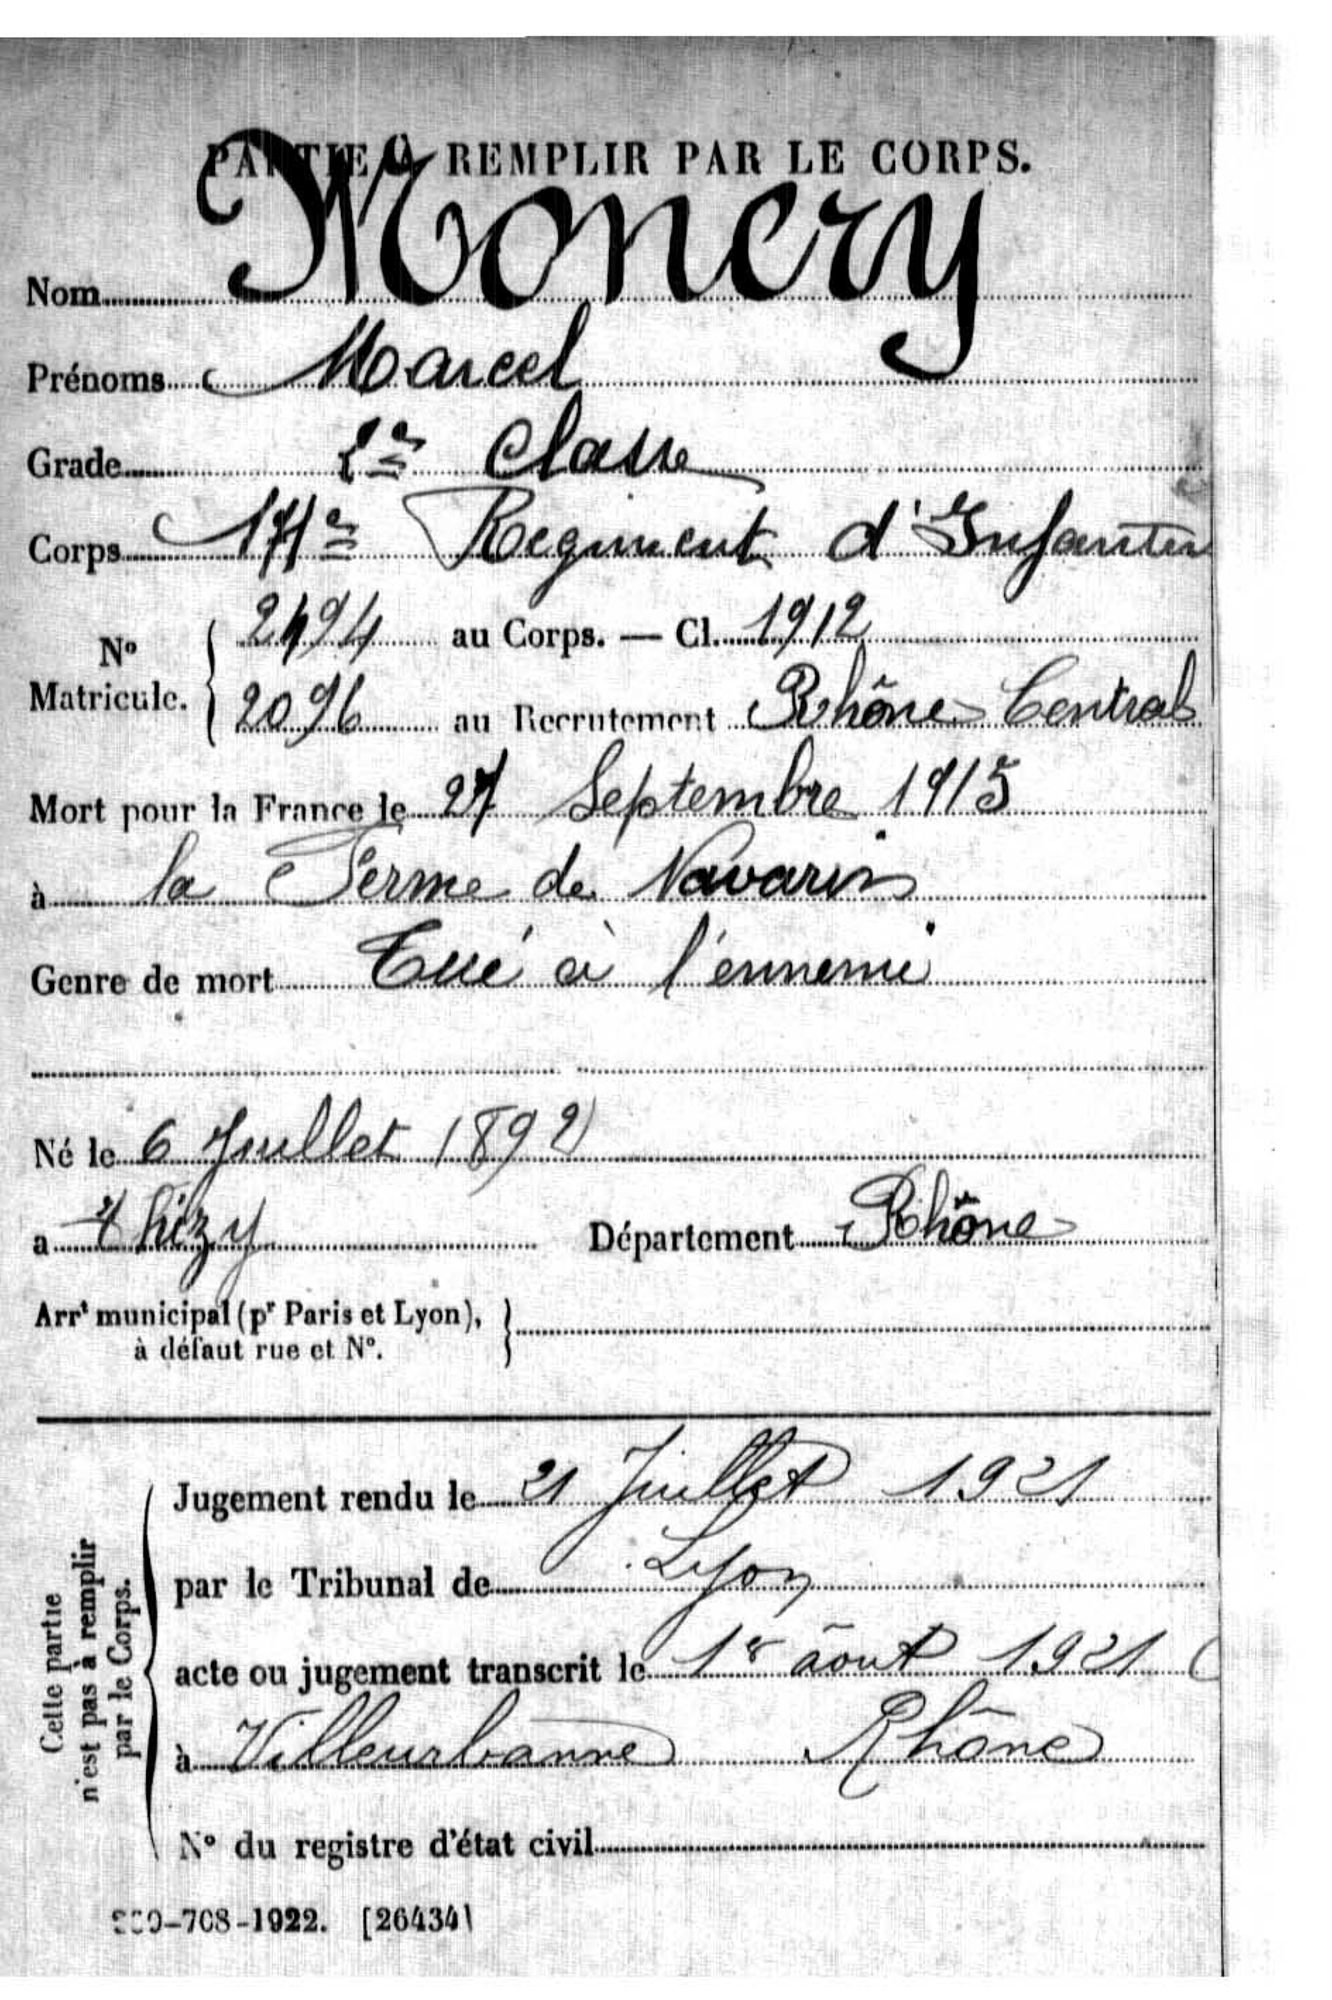 PARTIE À REMPLIR PAR LE CORPS.
Nom Moncry
Prénoms Marcel
Grade 2e Classe
Corps 171e Regiment d'Infanterie
No Matricule. 2494 au Corps. — Cl. 1912
2096 au Recrutement Rhône Central
Mort pour la France le 27 Septembre 1915
à la Ferme de Navarin
Genre de mort Tué à l'ennemi
Né le 6 Juillet 1892
a Thizy Département Rhône
Arrt municipal (pr Paris et Lyon),
à défaut rue et No.
Cette partie
n'est pas à remplir
par le Corps.
Jugement rendu le 21 Juillet 1921
par le Tribunal de Lyon
acte ou jugement transcrit le août 1921
à Villeurbanne Rhône
No du registre d'état civil
-708-1922. [26434]